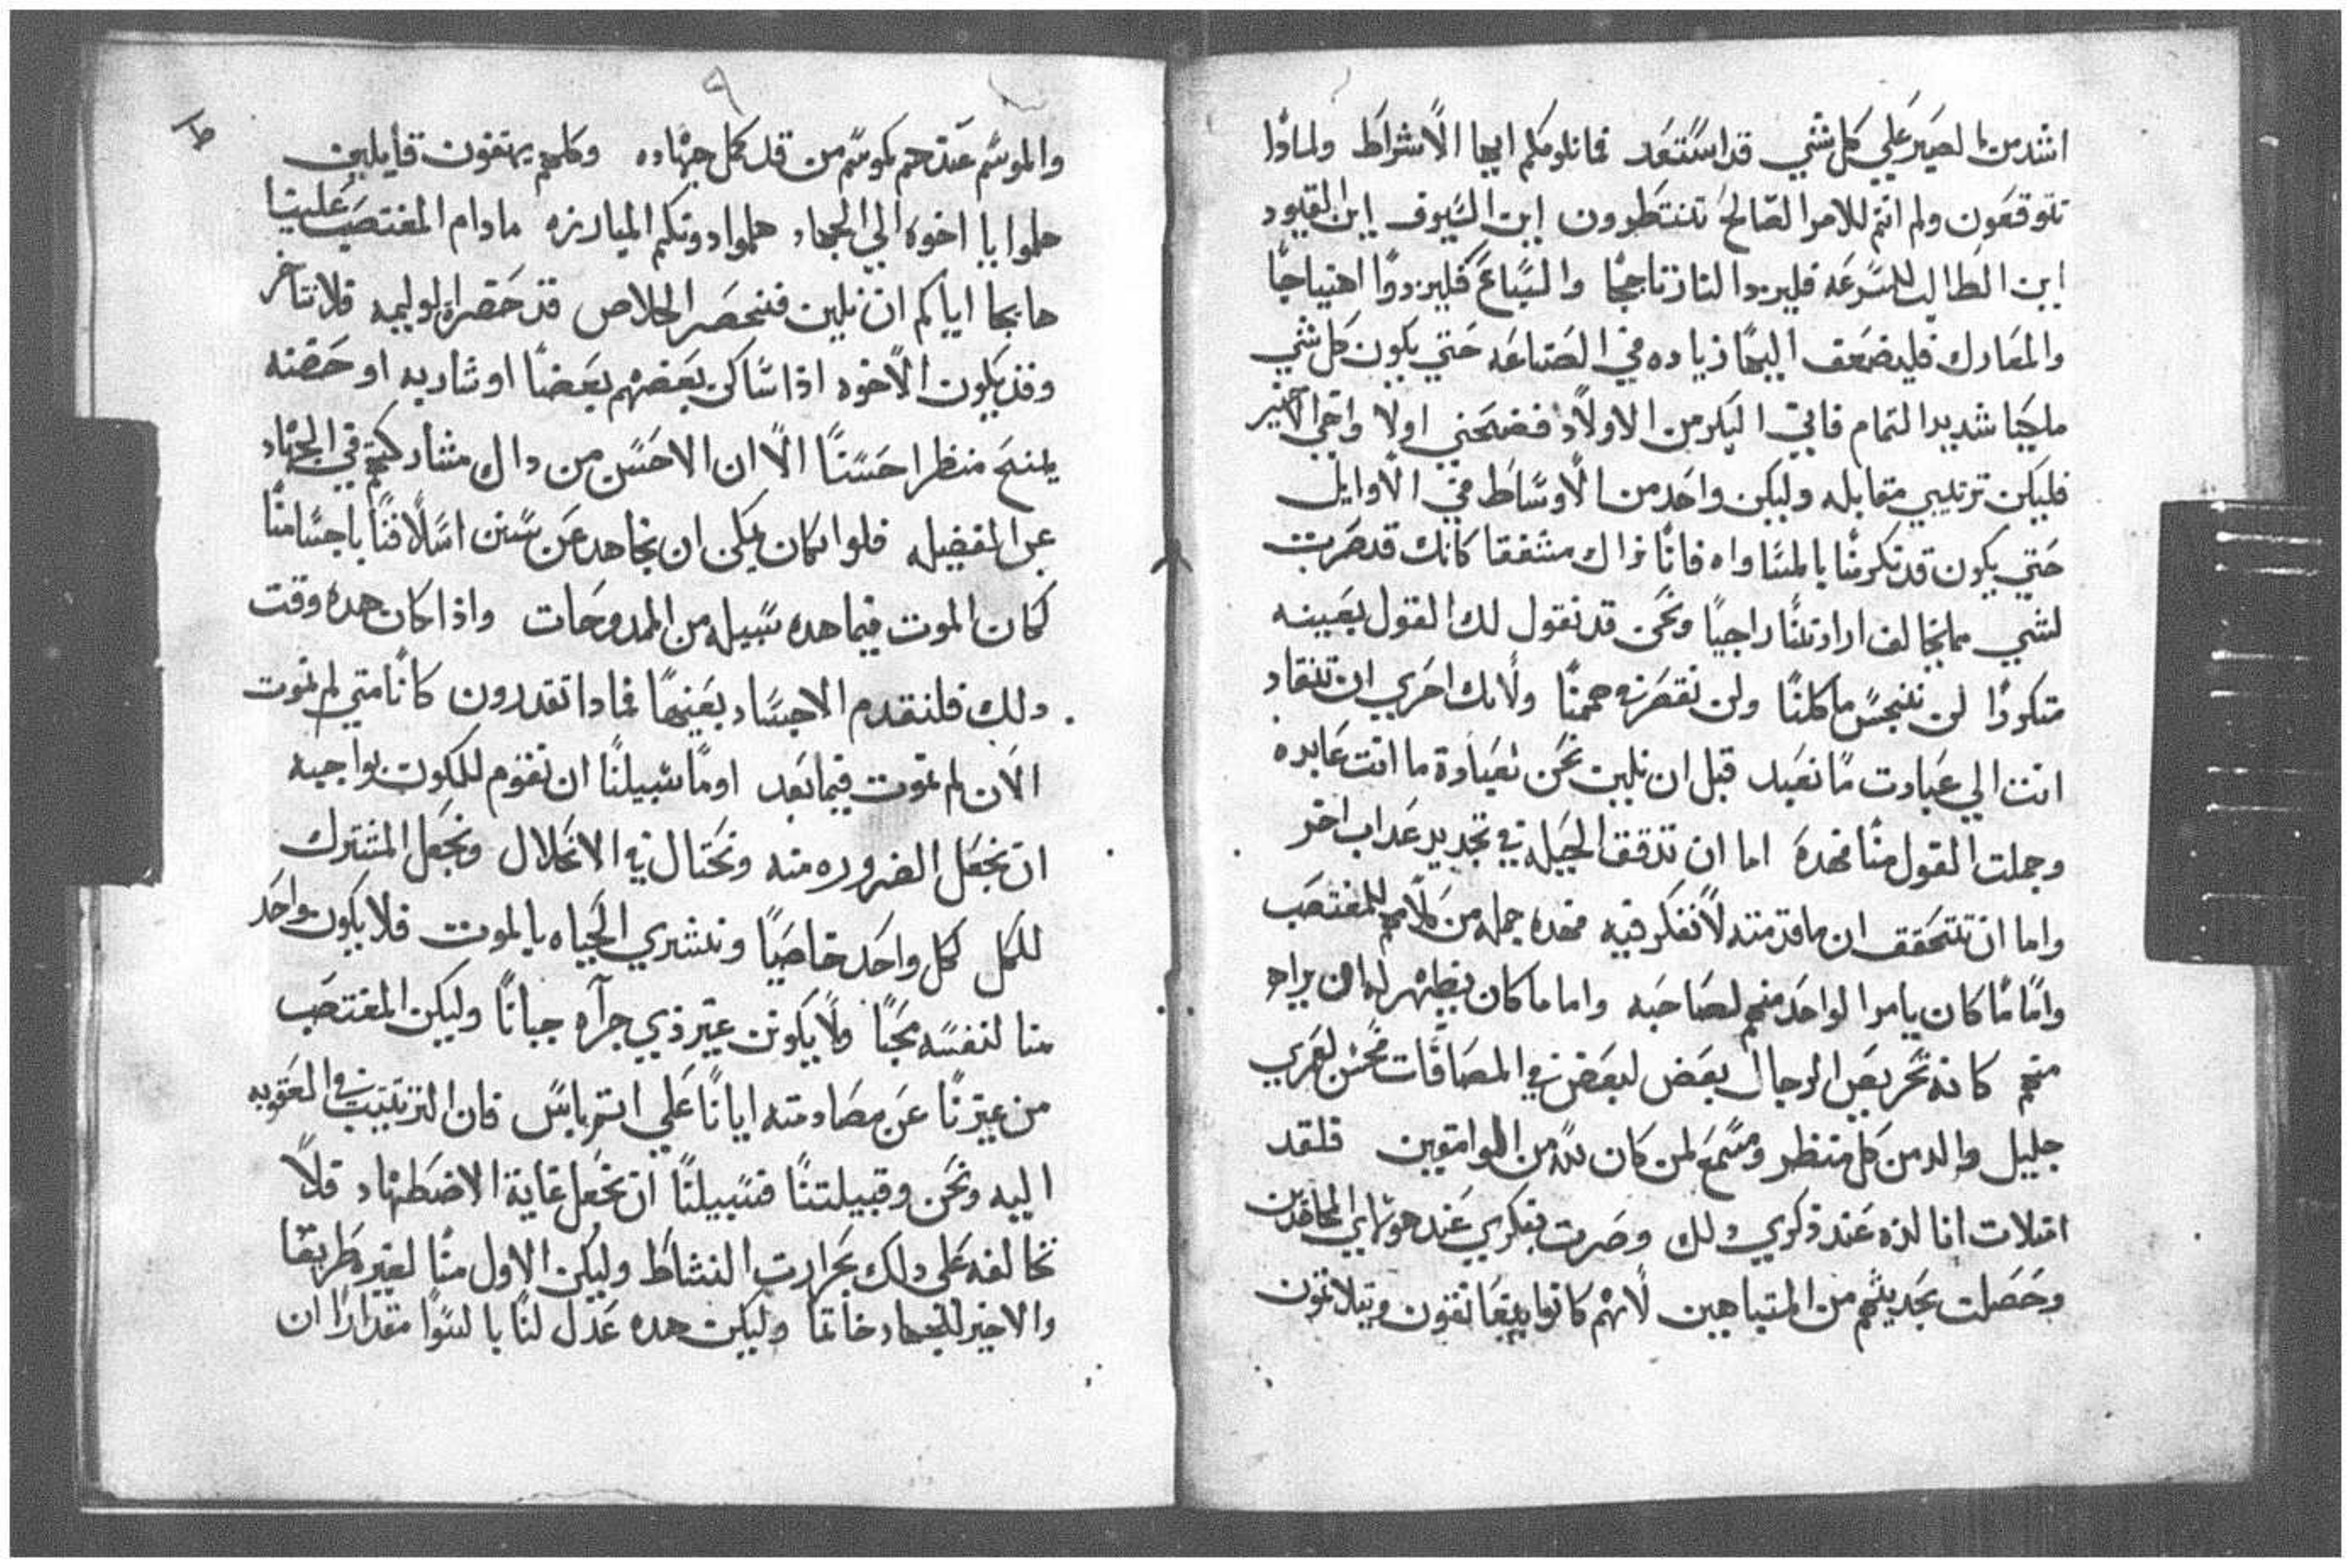 اشد من الصبر علي كل شي قد استعد فما نلومكم ايها الاشراط ولماذا
تتوقفون ولم انتم للامر الصالح تنتظرون اين السيوف اين القيود
اين الطالب للسرعه فليزد النار تاججا والسباع فليزدوا اهتياجا
والمعارك فليضعف اليها زياده في الصناعه حتي يكون كل شي
ملجيا شديد التمام فاني البكر من الاولاد فضحني اولا واخي الاخير
فليكن ترتيبي مقابله وليكن واحد من الاوساط في الاوايل
حتي يكون قد تكرمنا بالمساواه فانا نراك مشفقا كانك قد صرت
لشي مما يخالف ارادتنا راجيا ونحن قد نقول لك القول بعينه
متكررا لن نتنجس ماكلنا ولن نقصر هممنا ولانك احري ان تنقاد
انت الي عبادت ما نعبد قبل ان نلين نحن لعبادة ما انت عابده
وجملت القول منا فهده اما ان تدقق الحيله في تجديد عداب اخر
واما ان تتحقق ان ما قدمته لا نفكر فيه فهده جمله من كلامهم للمغتصب
واما ما كان يامر الواحد منهم لصاحبه واما ما كان يظهر لمن يراهم
منهم كانه تحريض الرجال بعض لبعض في المصافات فحسن لعمري
جليل والد من كل منظر ومسمع لمن كان من الوامقين فلقد
امتلات انا لذه عند ذكري دلك وصرت بفكري عند هولاي المجاهدين
وحصلت بحديثهم من المتباهين لانهم كانوا يتعانقون ويتلاثمون
٩
والموسم عندهم كموسم من قد كمل جهاده وكلهم يهتفون قايلين
هلموا يا اخوه الي الجهاد هلموا دونكم المبارزه ما دام المغتصب علينا
هايجا اياكم ان نلين فنخسر الخلاص قد حضرة الوليمه فلا نتاخر
وقد يكون الاخوه اذا ساكن بعضهم بعضا او شاربه او حضنه
يمنح منظرا حسنا الا ان الاحسن من داك مشاركتهم في الجهاد
عن الفضيله فلو كان يمكن ان نجاهد عن سنن اسلافنا باجسامنا
لكان الموت فيما هده سبيله من الممدوحات واذا كان هده وقت
دلك فلنقدم الاجساد بعينها فمادا تقدرون كانا متي لم نموت
الان لم نموت فيما بعد اوما سبيلنا ان نقوم للكون بواجبه
ان نجعل الضروره منه ونحتال في الانحلال ونجعل المشترك
للكل لكل واحد خاصيا ونشتري الحياه بالموت فلا يكون واحد
منا لنفسه محبا ولا يكونن غير ذي جرآه جبانا وليكن المغتصب
من غيرنا عن مصادمته ايانا علي اشر باس فان الترتيب في العقوبه
اليه ونحن وقبيلتنا فسبيلنا ان نجعل غاية الاضطهاد فلا
نخالفه علي دلك بحرارت النشاط وليكن الاول منا لغيره طريقا
والاخير للجهاد خاتما وليكن هده عدل لنا بالسوا مقدارا ان